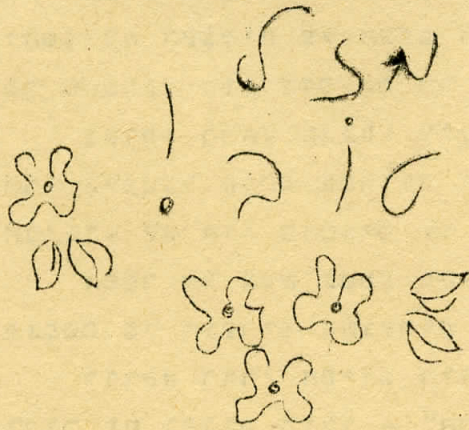 מזל
טוב!